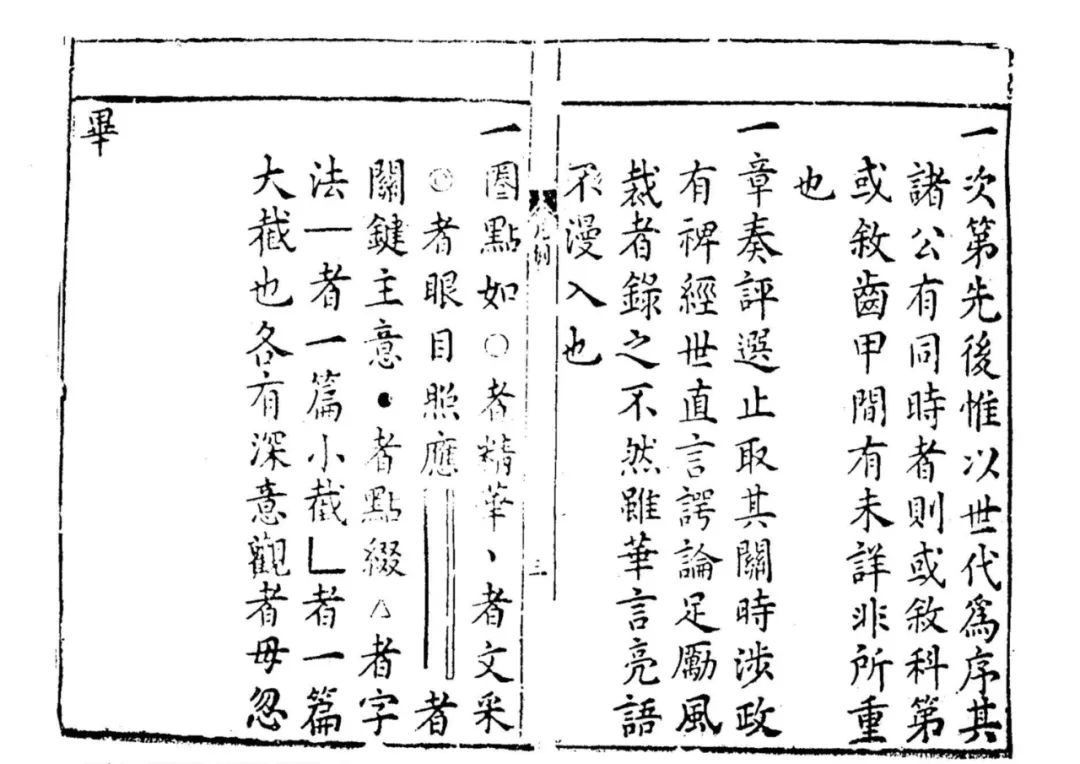 一次第先後惟以世代爲序其
諸公有同時者則或敘科第
或敘齒甲間有未詳非所重
也
一章奏評選止取其關時涉政
有裨經世直言諤論足勵風
裁者錄之不然雖華言亮語
不漫入也
凡例
三
一圈點如○者精華丶者文采
◎者眼目照應者
關鍵主意●者點綴△者字
法一者一篇小截𠃊者一篇
大截也各有深意觀者毋忽
畢